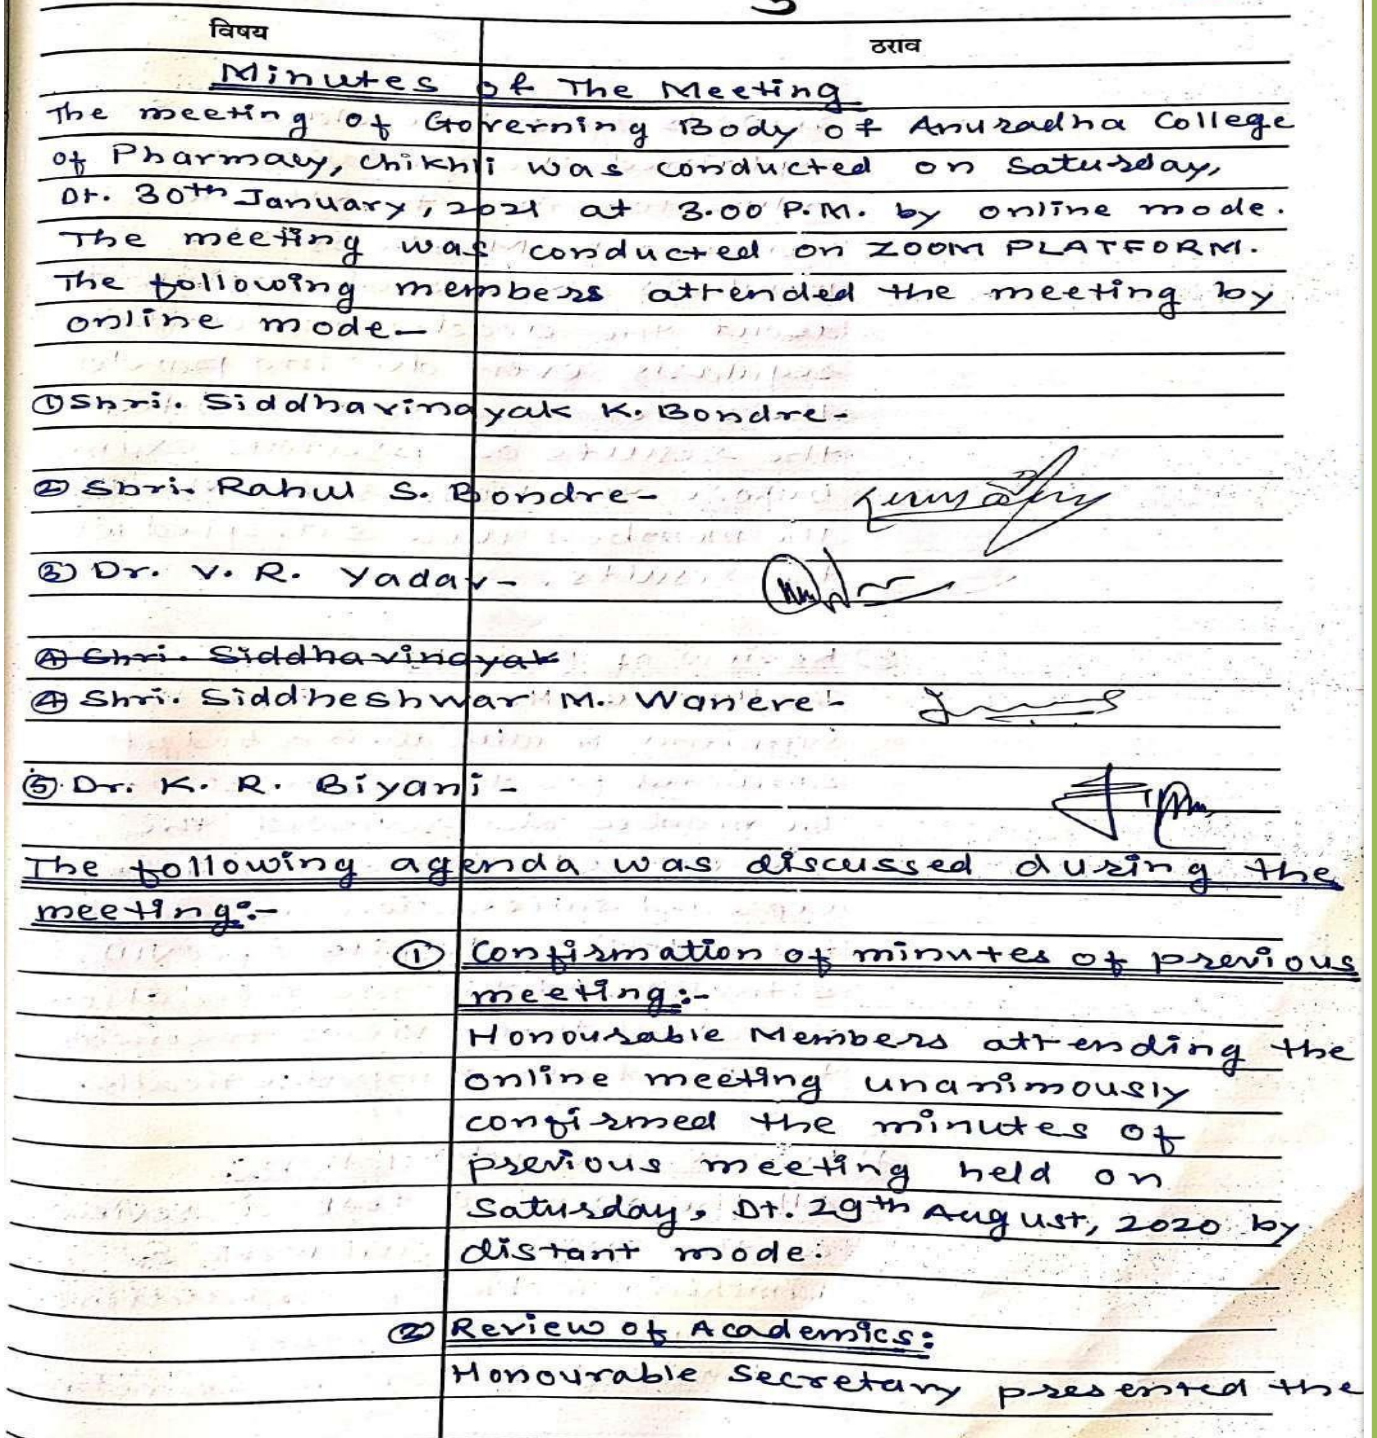 विषय ठराव
Minutes of The Meeting
The meeting of Governing Body of Anuradha College
of Pharmacy, Chikhli was conducted on Saturday,
Dt. 30th January, 2021 at 3.00 P.M. by online mode.
The meeting was conducted on ZOOM PLATFORM.
The following members attended the meeting by
online mode-
① Shri. Siddhavinayak K. Bondre-
② Shri. Rahul S. Bondre-
③ Dr. V. R. Yadav-
④ Shri. Siddhavinayak
④ Shri. Siddheshwar M. Wanere-
⑤ Dr. K. R. Biyani-
The following agenda was discussed during the
meeting:-
① Confirmation of minutes of previous
meeting:-
Honourable Members attending the
online meeting unanimously
confirmed the minutes of
previous meeting held on
Saturday, Dt. 29th August, 2020 by
distant mode.
② Review of Academics:
Honourable Secretary presented the